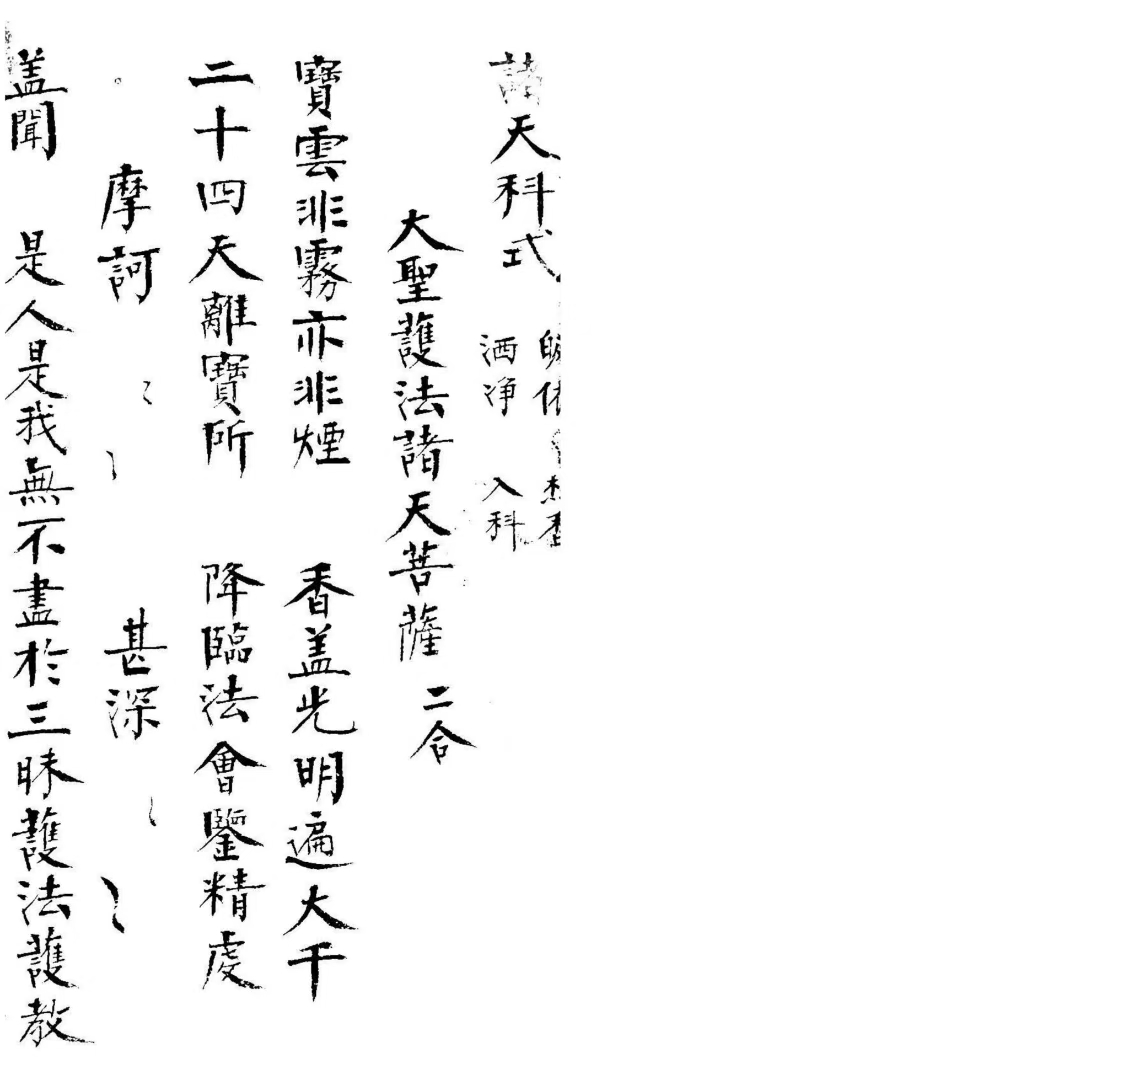 諸天科式
皈依
洒净 入科
大聖䕶法諸天菩薩 二合
寶雲非霧亦非煙 香盖光明遍大千
二十四天離寶所 降臨法會鑒精虔
摩訶 甚深
盖聞 是人是我無不盡於三昧䕶法䕶教